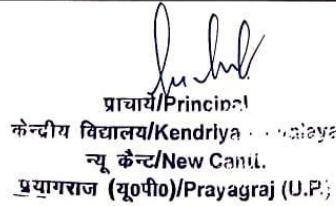 प्राचार्य/Principal
केन्द्रीय विद्यालय/Kendriya
न्यू कैन्ट/New Cantt.
प्रयागराज (यू०पी०)/Prayagraj (U.P.)